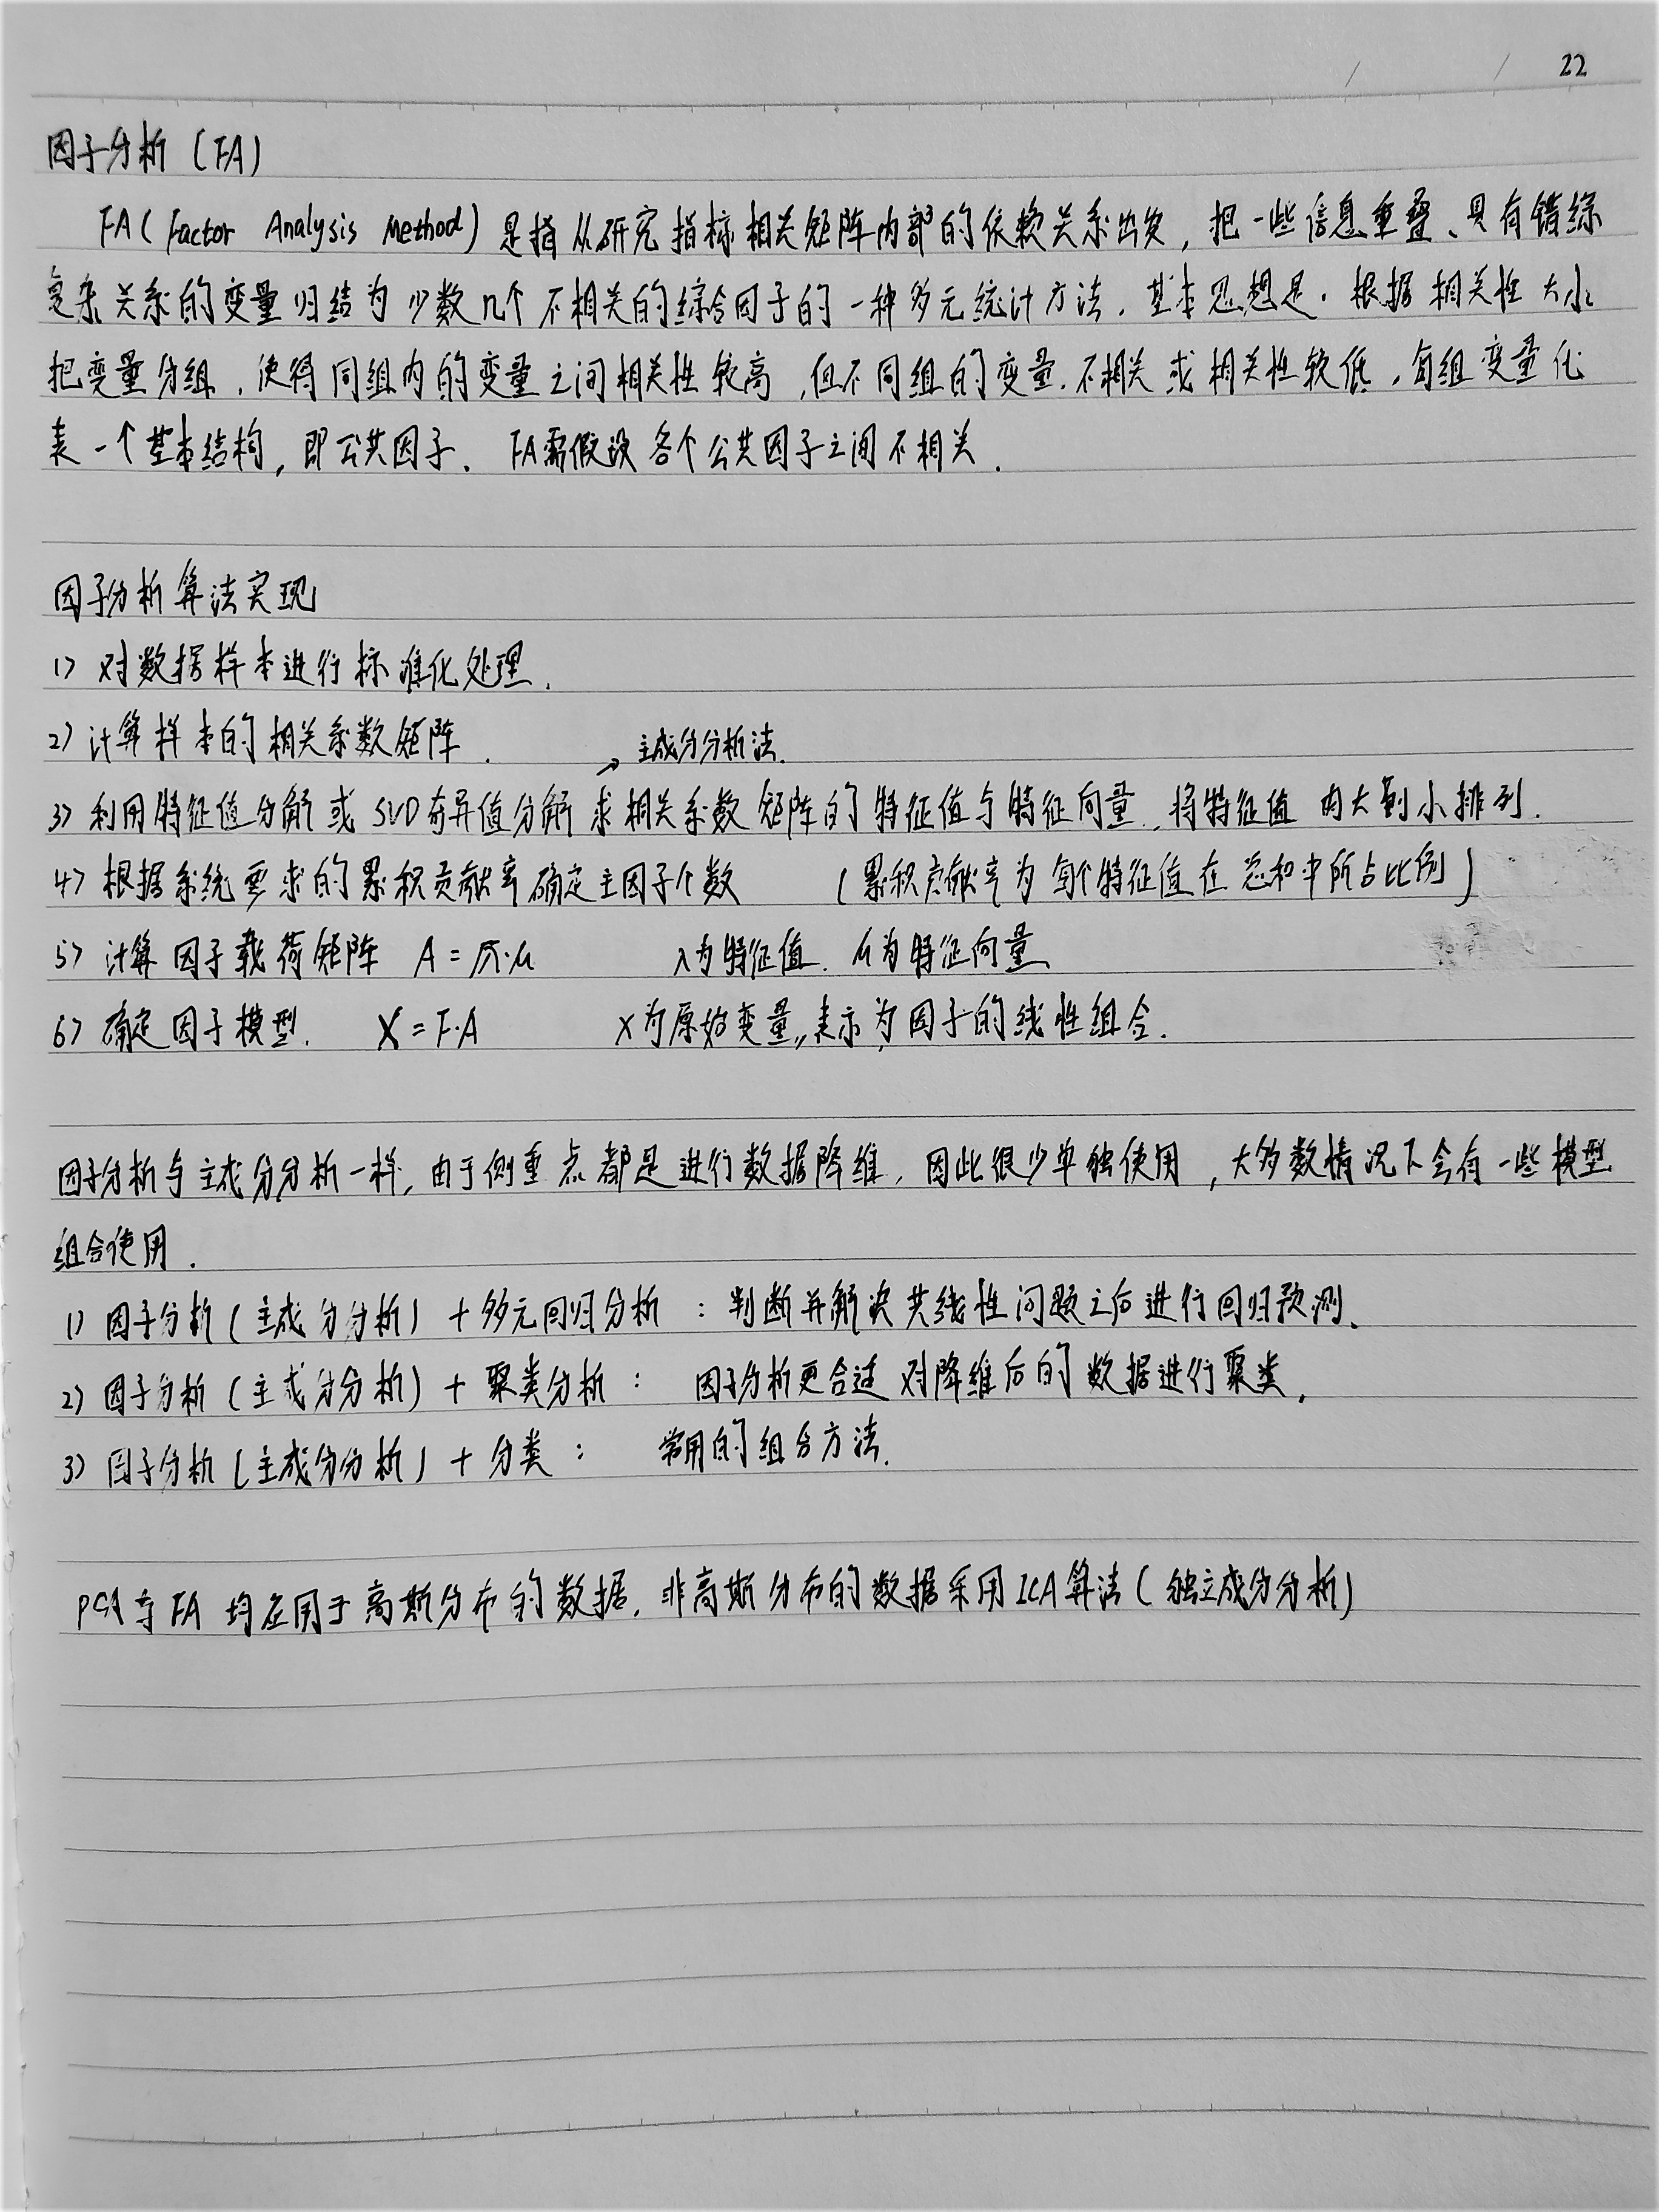 22
因子分析（FA）
FA（Factor Analysis Method）是指从研究指标相关矩阵内部的依赖关系出发，把一些信息重叠、具有错综
复杂关系的变量归结为少数几个不相关的综合因子的一种多元统计方法．基本思想是．根据相关性大小
把变量分组，使得同组内的变量之间相关性较高，但不同组的变量．不相关或相关性较低，每组变量代
表一个基本结构，即公共因子．FA需假设各个公共因子之间不相关．
因子分析算法实现
1）对数据样本进行标准化处理．
2）计算样本的相关系数矩阵．
→ 主成分分析法．
3）利用特征值分解或SVD奇异值分解求相关系数矩阵的特征值与特征向量，将特征值由大到小排列．
4）根据系统要求的累积贡献率确定主因子个数 （累积贡献率为每个特征值在总和中所占比例）
5）计算因子载荷矩阵 A=√λ·μ λ为特征值．μ为特征向量
6）确定因子模型． X=F·A X为原始变量，表示为因子的线性组合．
因子分析与主成分分析一样，由于侧重点都是进行数据降维，因此很少单独使用，大多数情况下会有一些模型
组合使用．
1）因子分析（主成分分析）+多元回归分析：判断并解决共线性问题之后进行回归预测．
2）因子分析（主成分分析）+聚类分析：因子分析更合适对降维后的数据进行聚类．
3）因子分析（主成分分析）+分类：常用的组合方法．
PCA与FA均应用于高斯分布的数据．非高斯分布的数据采用ICA算法（独立成分分析）